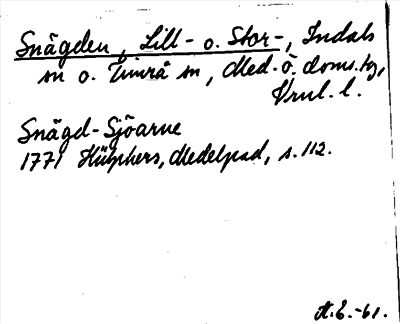 Snägden, Lill- o. Stor-, Indals
sn o. Timrå sn, Med. ö. doms.,
Vrnl. l.
Snägd-Sjöarne
1771 Hülphers, Medelpad, s. 112.
A.E.-61.